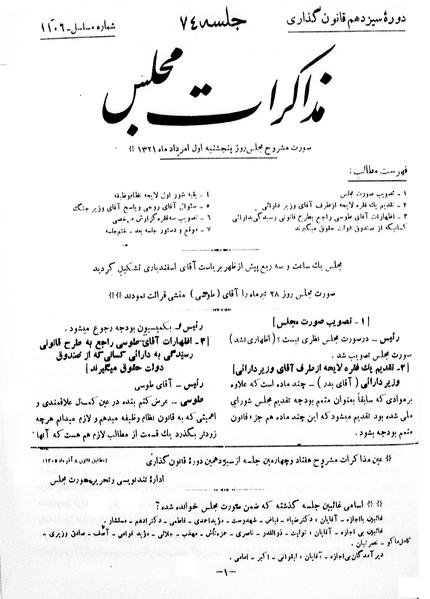 دورهٔ سیزدهم قانون گذاری
جلسه ۷۴
شماره مسلسل - ۱۱۰۶
مذاکرات مجلس
صورت مشروح مجلس روز پنجشنبه اول امرداد ماه ۱۳۲۱
فهرست مطالب :
۱ - تصویب صورت مجلس
۲ - تقدیم یک فقره لایحه از طرف آقای وزیر دارائی
۳ - اظهارات آقای طوسی راجع بطرح قانونی رسیدگی بدارائی
کسانیکه از صندوق دولت حقوق میگیرند
۴ - بقیه شور اول لایحه نظام وظیفه
۵ - سئوال آقای روحی و پاسخ آقای وزیر جنگ
۶ - تصویب سه فقره گزارش مرخصی
۷ - موقع و دستور جلسه بعد - ختم جلسه
مجلس یک ساعت و سه ربع پیش از ظهر بریاست آقای اسفندیاری تشکیل گردید
صورت مجلس روز ۲۸ تیر ماه را آقای (طوسی) منشی قرائت نمودند
[۱ - تصویب صورت مجلس]
رئیس - در صورت مجلس نظری نیست ؟ (اظهاری نشد)
صورت مجلس تصویب شد .
[۲ - تقدیم یک فقره لایحه از طرف آقای وزیر دارائی]
وزیر دارائی (آقای بدر) - چند ماده است که علاوه
برموادی که سابقاً بعنوان متمم بودجه تقدیم مجلس شورای
ملی شده بود تقدیم میشود که این چند ماده هم جزء قانون
متمم بودجه بشود .
رئیس - بکمیسیون بودجه رجوع میشود .
[۳ - اظهارات آقای طوسی راجع به طرح قانونی
رسیدگی به دارائی کسانی که از صندوق
دولت حقوق میگیرند]
رئیس - آقای طوسی
طوسی - عرض کنم بنده در عین کمال علاقمندی و
اهمیتی که به قانون نظام وظیفه میدهم و لازم میدانم هرچه
زودتر بگذرد یک قسمت از مطالب لازم هم هست که آنها
عین مذاکرات مشروح هفتاد و چهارمین جلسه از سیزدهمین دورهٔ قانون گذاری
(مطابق قانون ۸ آذر ماه ۱۳۰۵)
ادارهٔ تند نویسی و تحریر صورت مجلس
اسامی غائبین جلسه گذشته که ضمن صورت مجلس خوانده شده :
غائبین با اجازه - آقایان : دکتر ضیاء - فیاض - شهدوست - مؤید احمدی - فاطمی - دکتر ادهم - مستشار .
غائبین بی اجازه - آقایان : تولیت - ذوالقدر - ناصری - عزه‌تاش - مهذب - جلالی - مؤید قوامی - آصف - صادق وزیری -
کامل ماکو - نصرتیان .
دیر آمدگان بی اجازه - آقایان : ایقوانی - اکبر - امامی .
- ۱ -